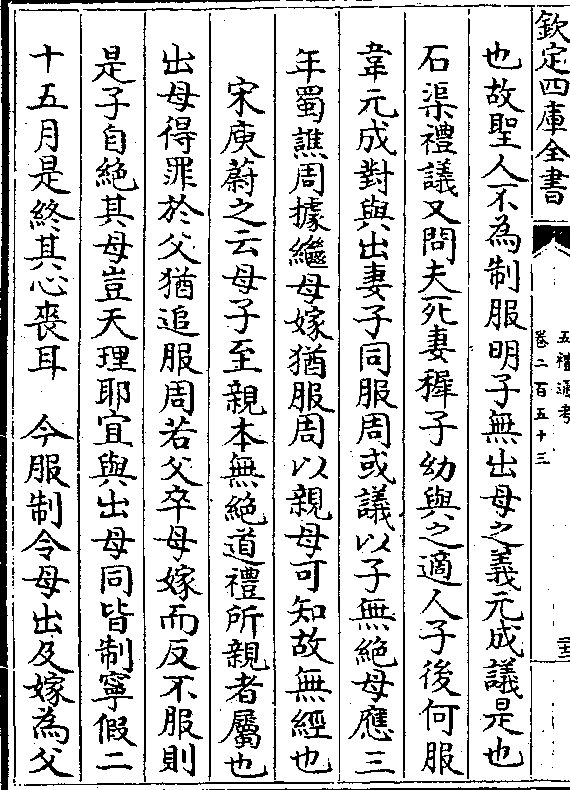 欽定四庫全書
五禮通考
卷二百五十三
也故聖人不為制服明子無出母之義元成議是也
石渠禮議又問夫死妻穉子幼與之適人子後何服
韋元成對與出妻子同服周或議以子無絕母應三
年蜀譙周據繼母嫁猶服周以親母可知故無經也
宋庾蔚之云母子至親本無絕道禮所親者屬也
出母得罪於父猶追服周若父卒母嫁而反不服則
是子自絕其母豈天理耶宜與出母同皆制寧假二
十五月是終其心喪耳　今服制令母出及嫁為父